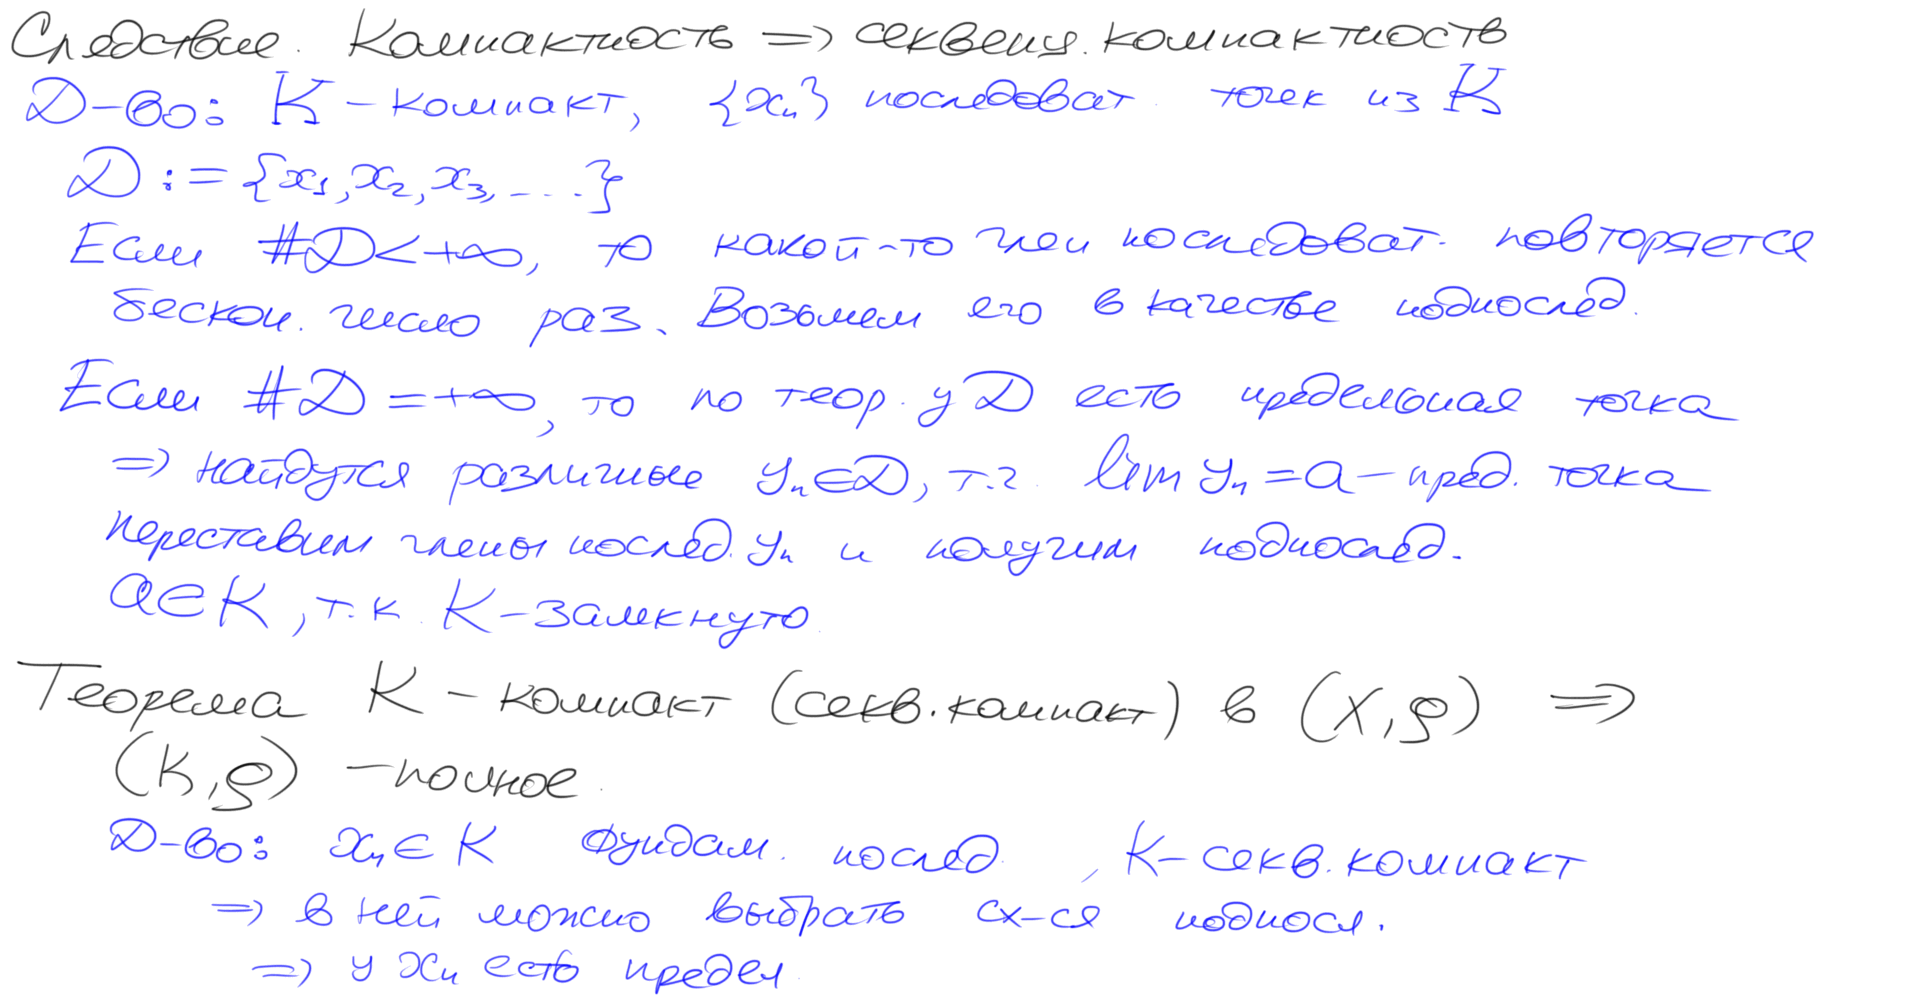 Следствие. Компактность => секвенц. компактность
Д-во: K - компакт, {xₙ} последоват. точек из K
D := {x₁, x₂, x₃, ...}
Если #D < +∞, то какой-то член последоват. повторяется
бескон. число раз. Возьмем его в качестве подпослед.
Если #D = +∞, то по теор. у D есть предельная точка
=> найдутся различные yₙ ∈ D, т.ч. lim yₙ = a - пред. точка
Переставим члены послед. yₙ и получим подпослед.
a ∈ K, т.к. K - замкнуто
Теорема K - компакт (секв. компакт) в (X, ρ) =>
(K, ρ) - полное.
Д-во: xₙ ∈ K фундам. послед., K - секв. компакт
=> в ней можно выбрать сх-ся подпосл.
=> у xₙ есть предел